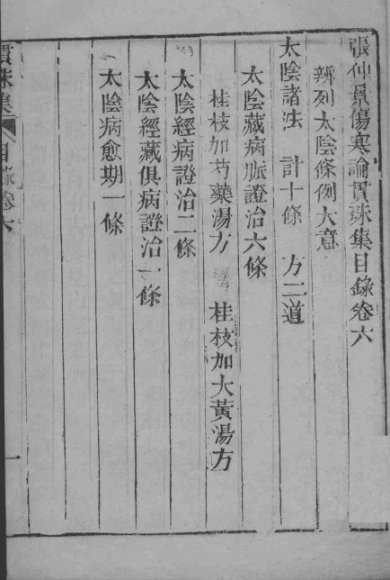 張仲景傷寒論貫珠集目錄卷六
辨列太陰條例大意
太陰諸法 計十條 方二道
太陰藏病脈證治六條
桂枝加芍藥湯方 桂枝加大黃湯方
太陰經病證治二條
太陰經藏俱病證治一條
太陰病愈期一條
貫珠集 目錄卷六 一